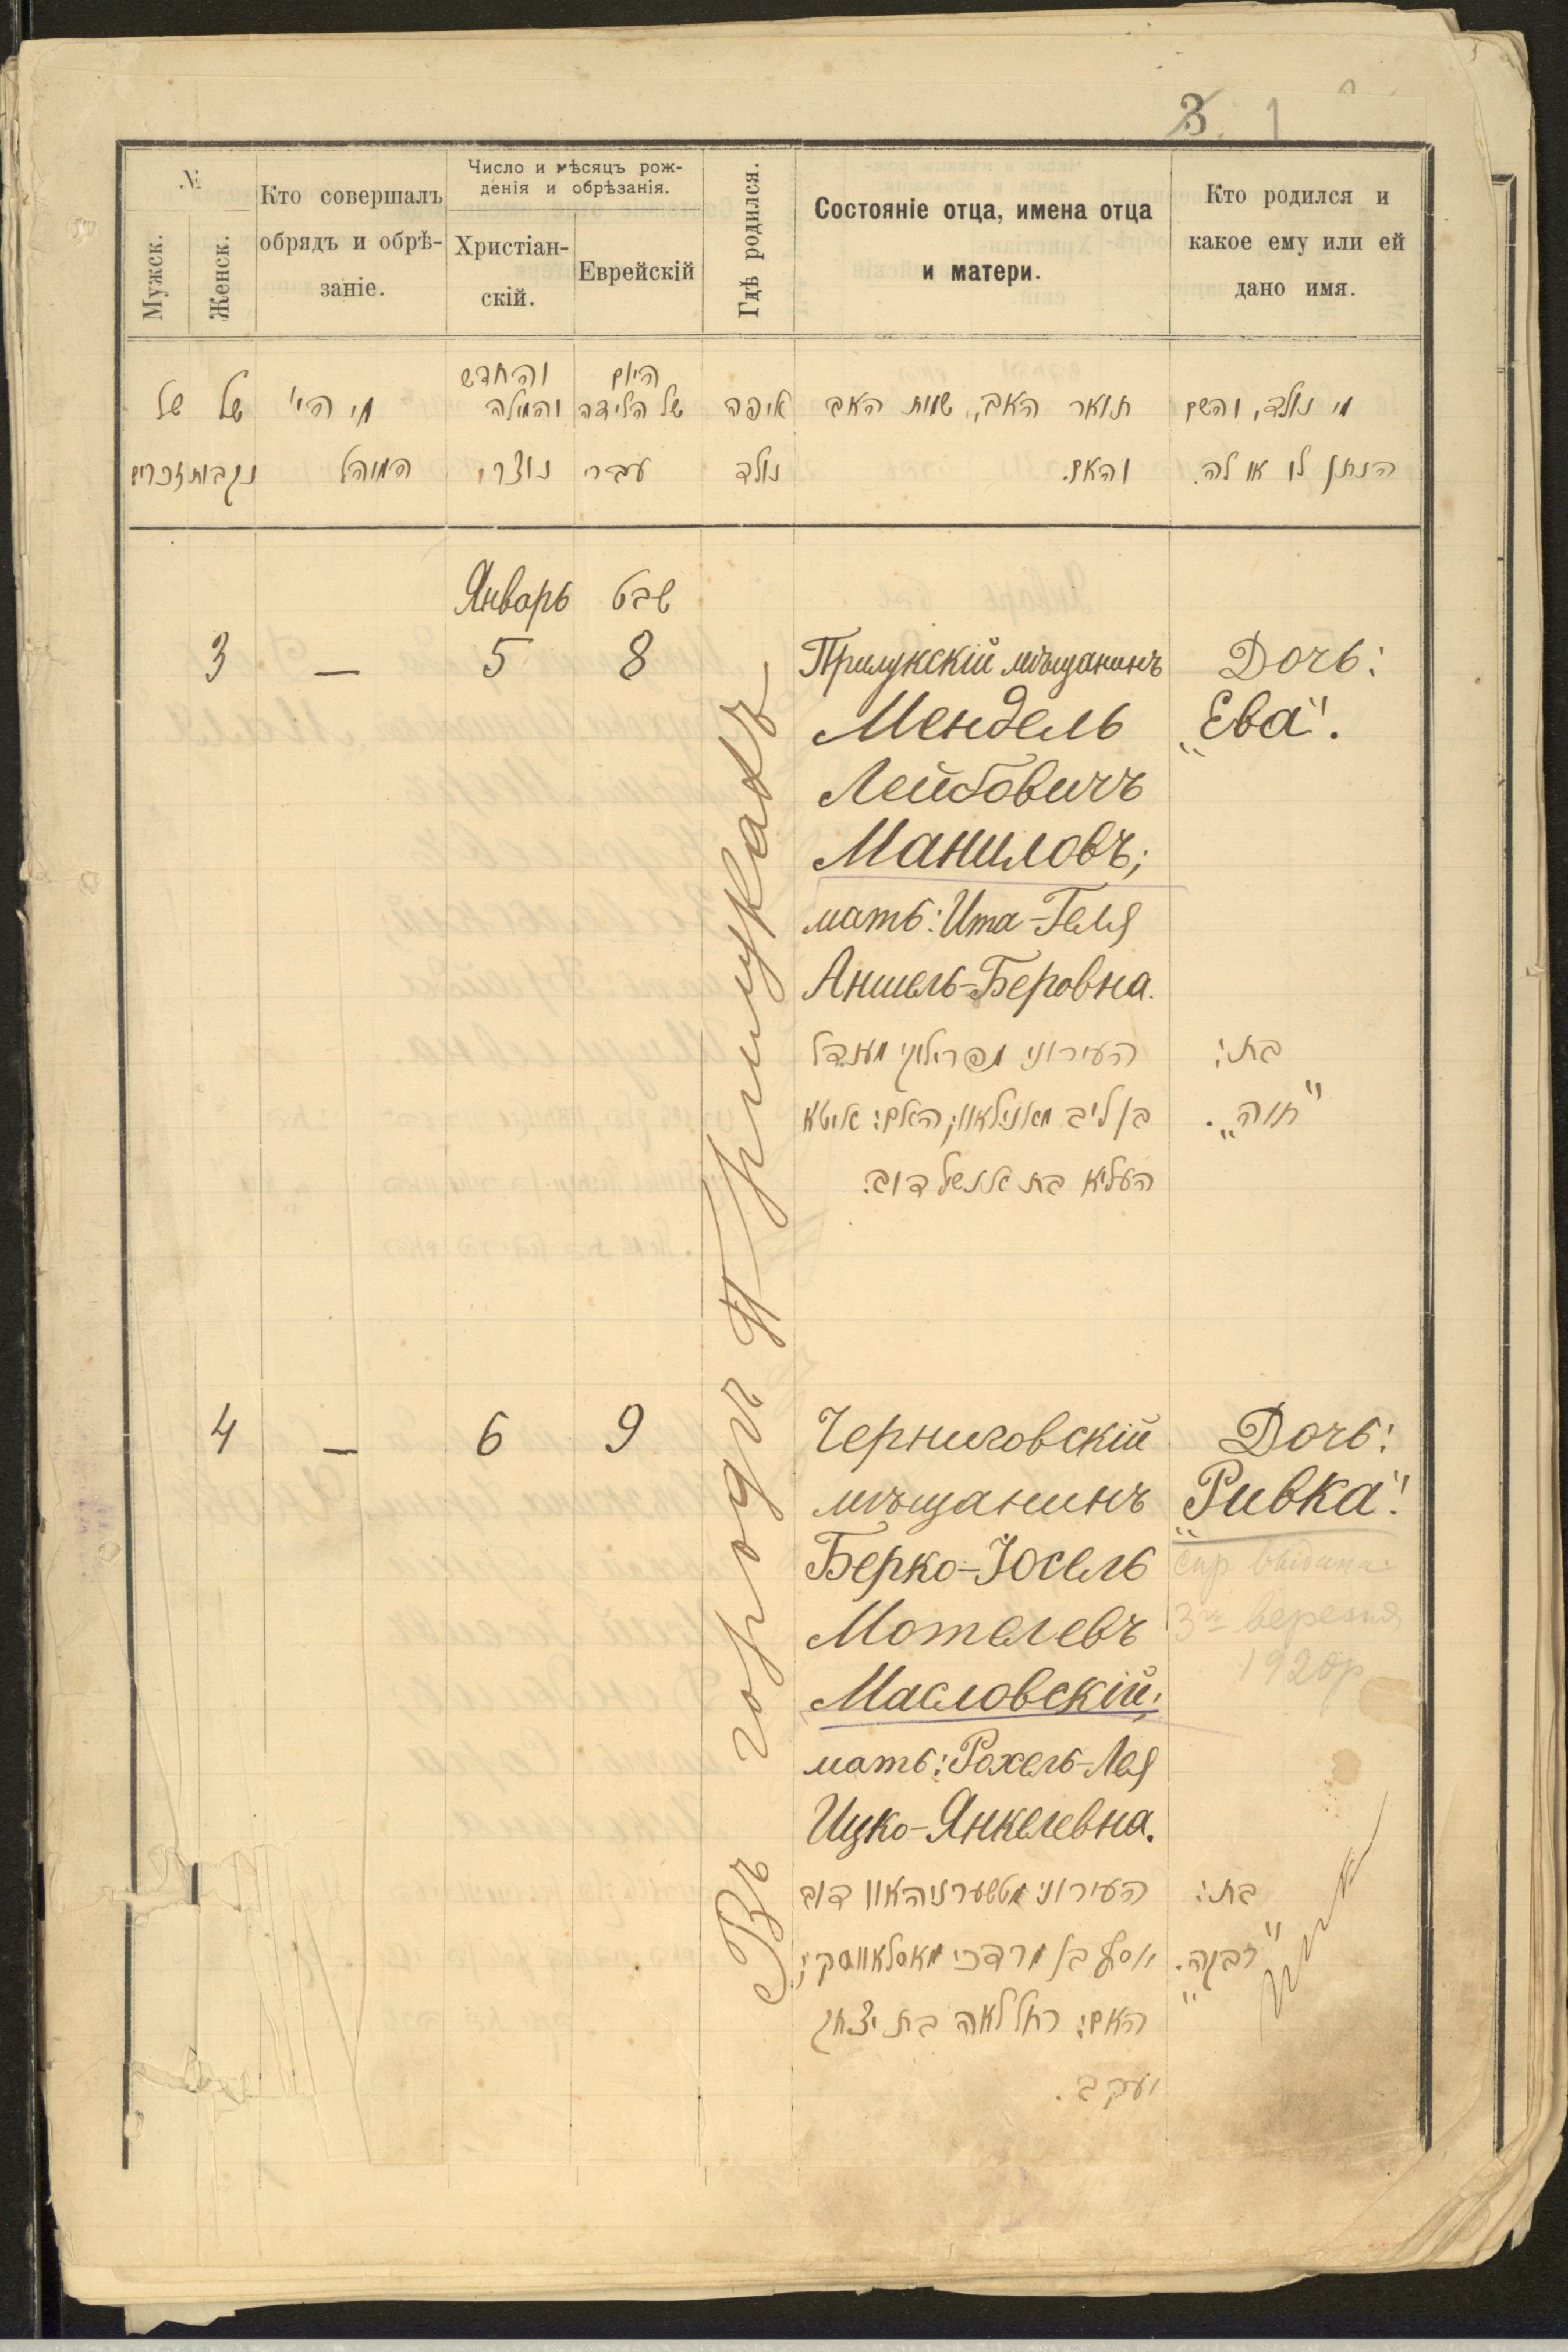 3 1
№
Мужск.
Женск.
Кто совершалъ
обрядъ и обрѣ-
заніе.
Число и мѣсяцъ рож-
денія и обрѣзанія.
Христіан-
скій.
Еврейскій
Гдѣ родился.
Состояніе отца, имена отца
и матери.
Кто родился и
какое ему или ей
дано имя.
של של
נקבות זכרים
מי הי'
המוהל
היום והחדש
של הלידה והמילה
עברי נוצרי
איפה
נולד
תואר האב, שמות האב
והאם.
מי נולד, והשם
הנתן לו או לה.
Январь שבט
3 — 5 8
Въ городѣ Прилукахъ
Прилукскій мѣщанинъ
Мендель
Лейбовичъ
Маниловъ;
мать: Ита-Геля
Аншель-Беровна.
העירוני מפרילוקי מענדל
בן ליב מאנילאוו; האם: איטא
העליא בת אנשל דוב.
Дочь:
„Ева".
בת:
"חוה„.
4 — 6 9
Черниговскій
мѣщанинъ
Берко-Іосель
Мотелевъ
Масловскій;
мать: Рохель-Лея
Ицко-Янкелевна.
העירוני מטשערניהאוו דוב
יוסף בן מרדכי מאסלאווסקי;
האם: רחל לאה בת יצחק
יעקב.
Дочь:
„Ривка".
выдана
3го березня
1920р
בת:
"רבקה„.